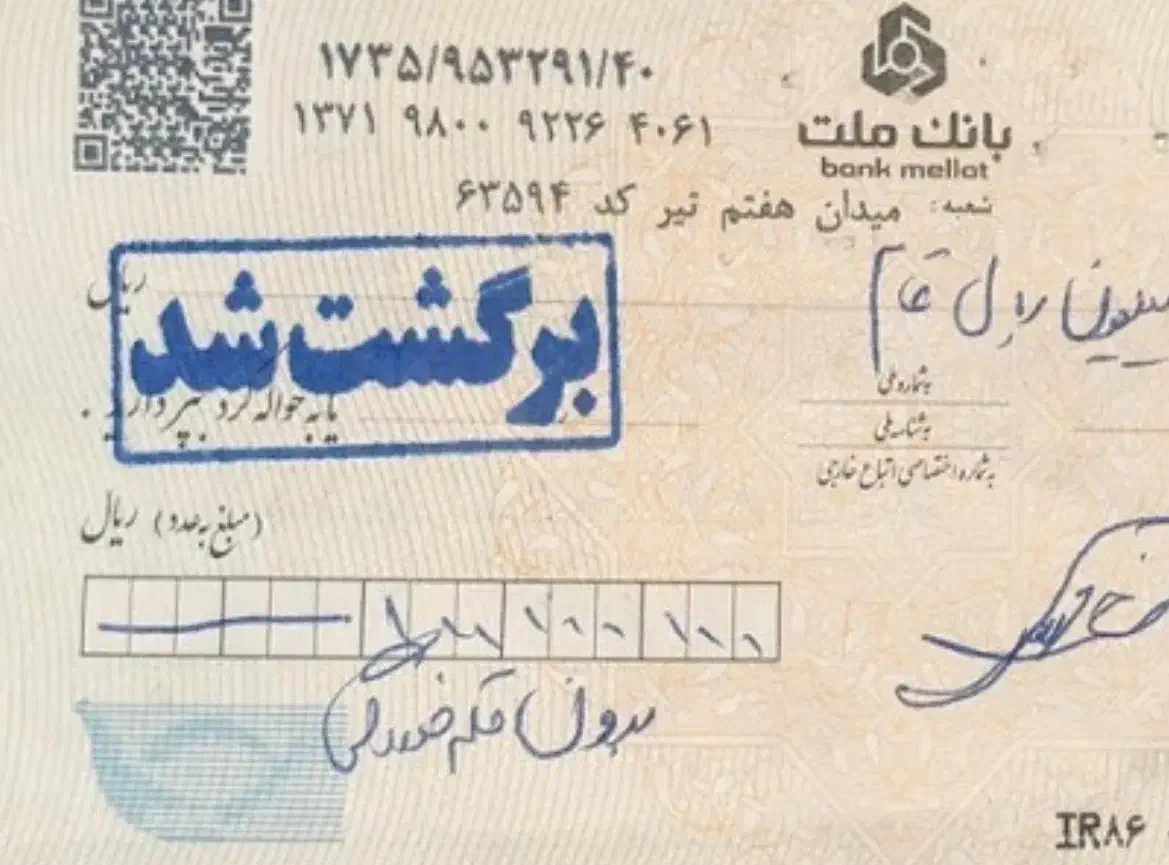 ۱۷۳۵/۹۵۳۲۹۱/۴۰
۱۳۷۱ ۹۸۰۰ ۹۲۲۶ ۴۰۶۱
بانك ملت
bank mellat
شعبه: میدان هفتم تیر کد ۶۳۵۹۴
میلیون ریال تمام
ریال
برگشت شد
به شماره ملی
یا به حواله کرد بپردازید.
به شناسه ملی
به شماره اختصاصی اتباع خارجی
(مبلغ به عدد) ریال
بدون قلم خوردگی
IR۸۶